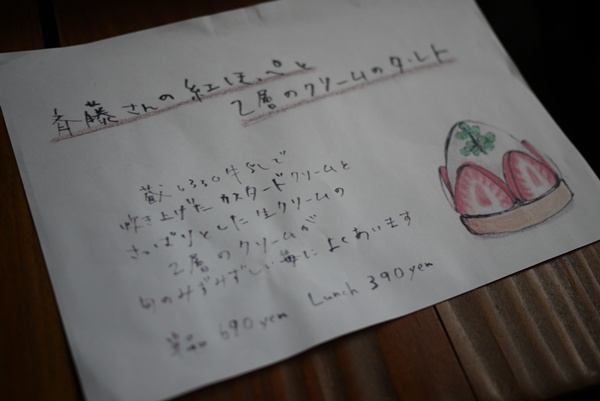 斉藤さんの紅ほっぺと
2層のクリームのタルト
蔵王330牛乳で
炊き上げたカスタードクリームと
さっぱりとした生クリームの
2層のクリームが
旬のみずみずしい苺によくあいます
単品 690 yen Lunch 390 yen